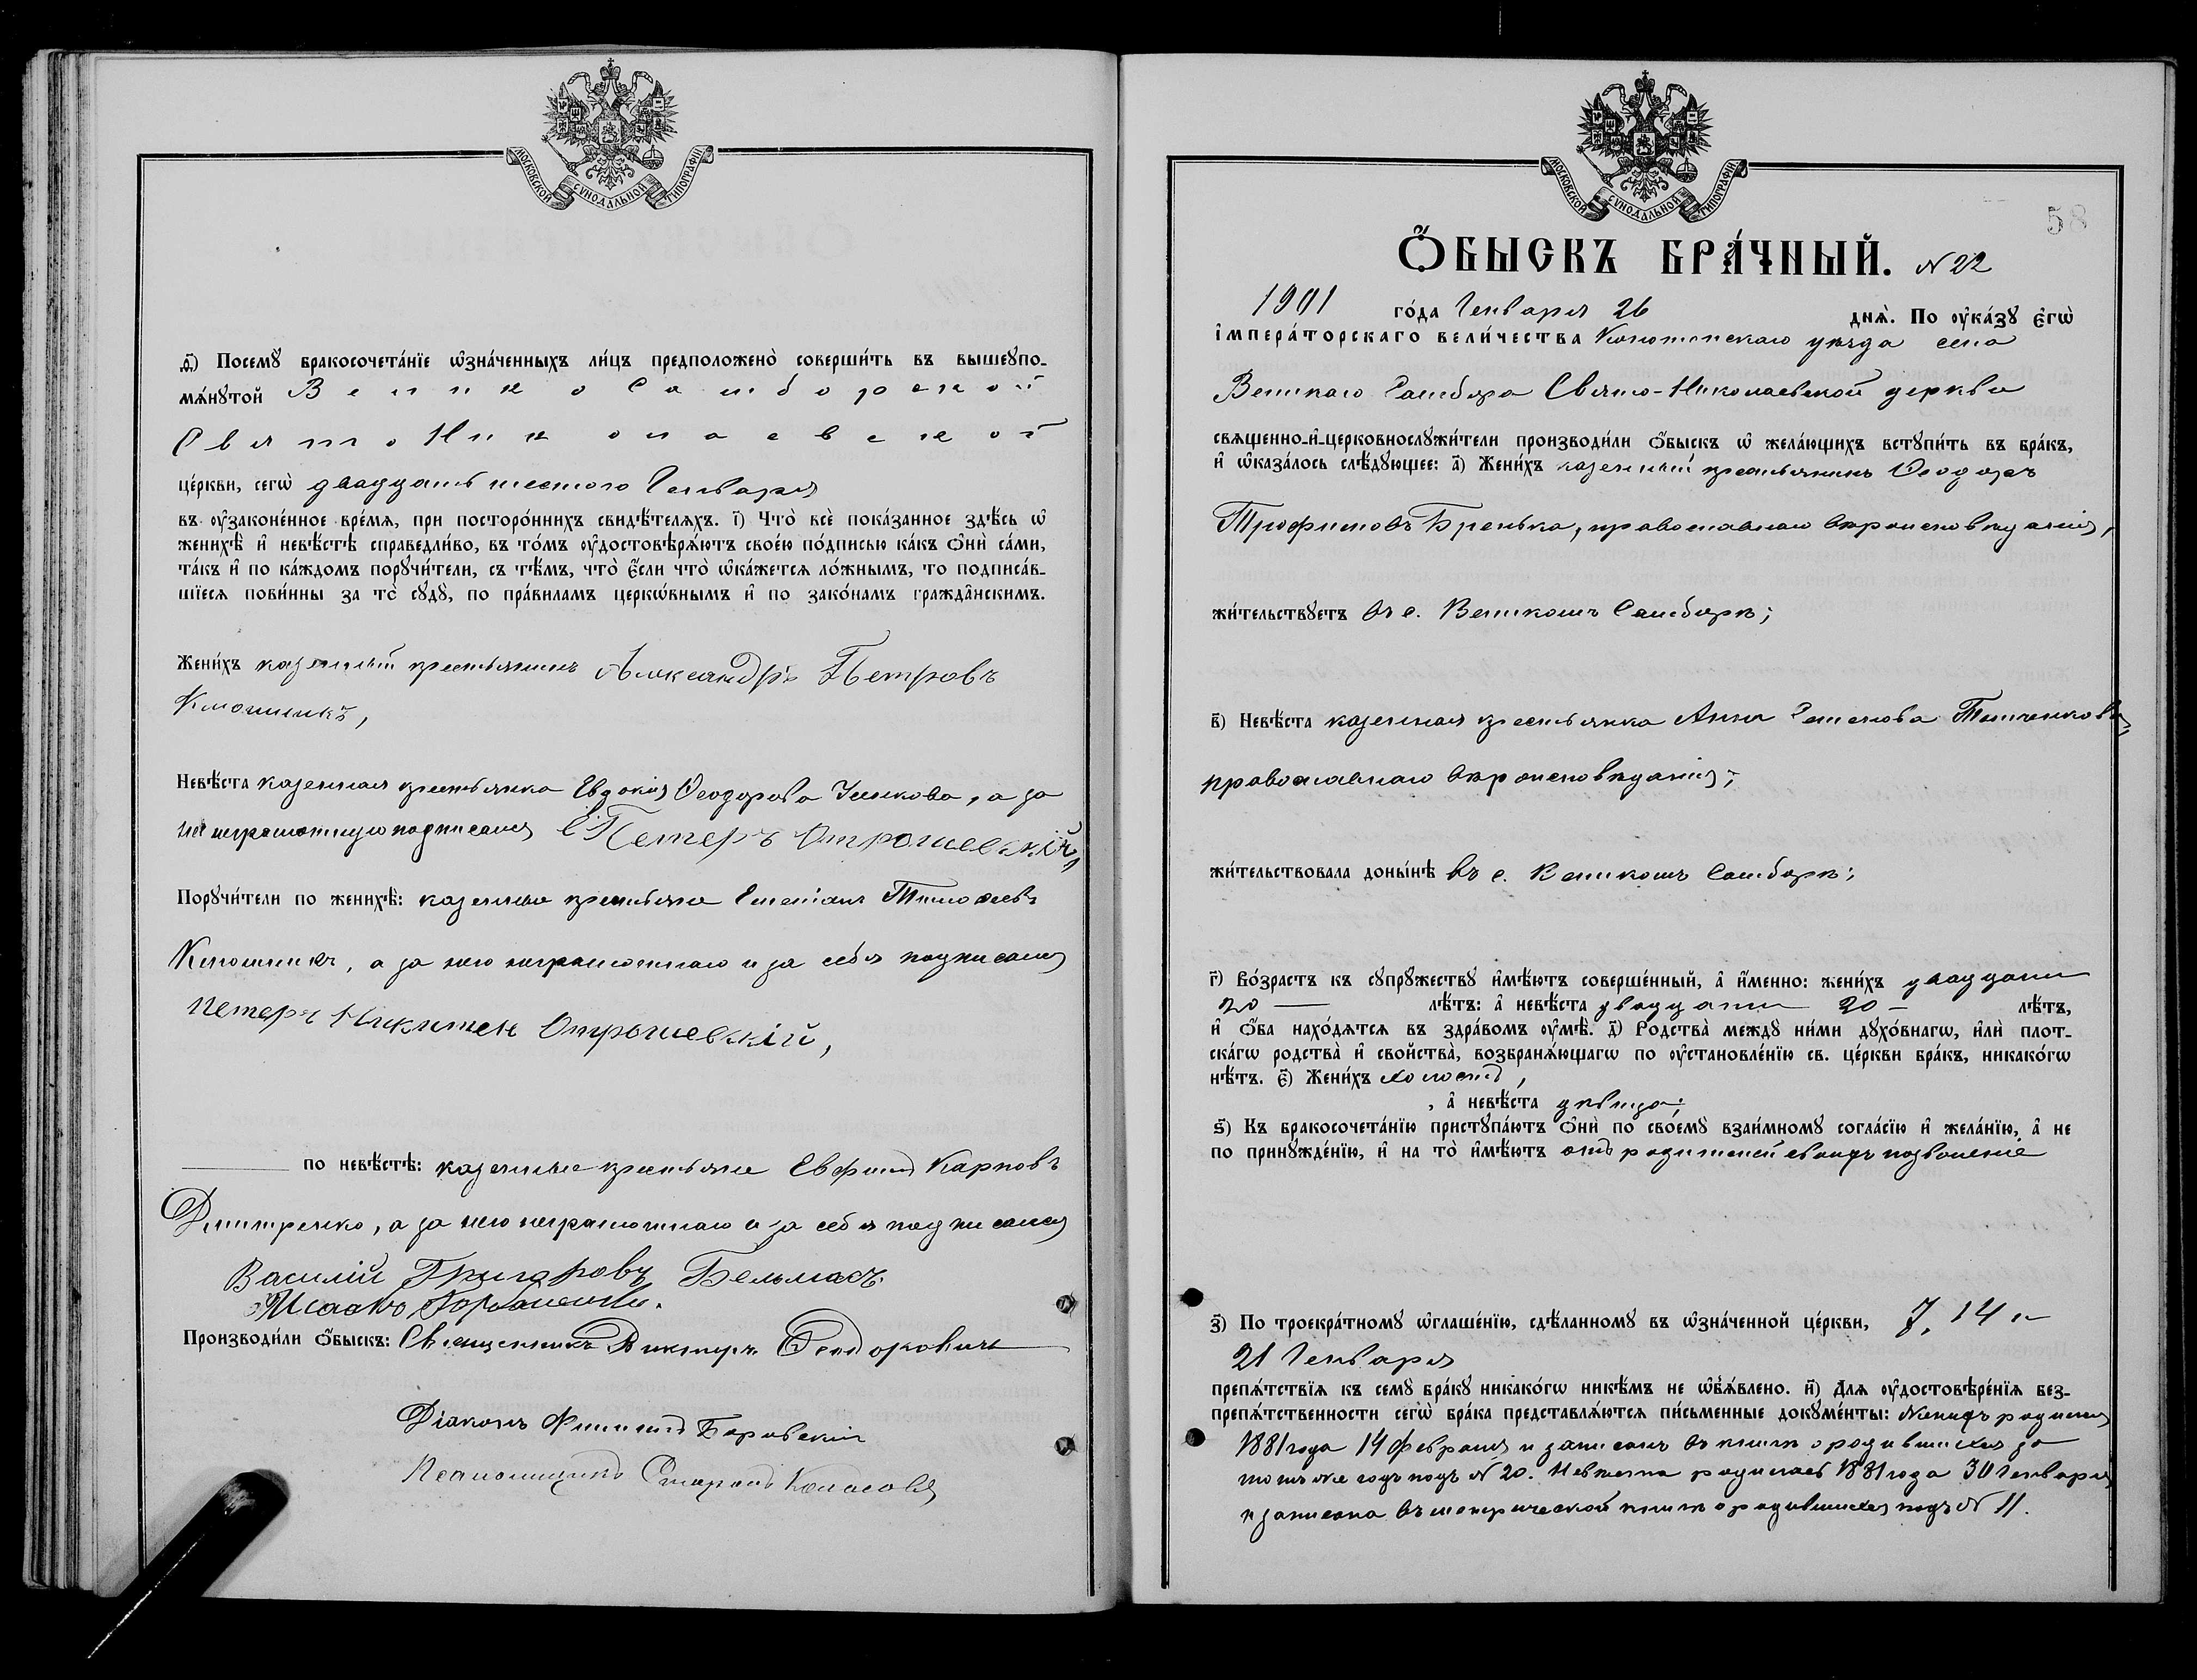 МОСКОВСКОЙ СѴНОДАЛЬНОЙ ТИПОГРАФІИ
д҃) Посемꙋ̀ бракосочета́нїе ѡ҆зна́ченныхъ ли́цъ предположено̀ соверши́ть въ вышеꙋпо-
мѧ́нꙋтой Велико Самборской
Свято Николаевской
це́ркви, сегѡ̀ двадцать шестого Генваря
въ ᲂу҆законе́нное вре́мѧ, при посторо́ннихъ свидѣ́телѧхъ. і҃) Что̀ всѐ пока́занное здѣ́сь ѡ҆
женихѣ̀ и҆ невѣ́стѣ справедли́во, въ то́мъ ᲂу҆достовѣрѧ́ютъ свое́ю по́дписью ка́къ ѻ҆нѝ са́ми,
та́къ и҆ по ка́ждомъ порꙋчи́тели, съ тѣ́мъ, что̀ є҆́сли что̀ ѡ҆ка́жетсѧ ло́жнымъ, то подписа́в-
шїесѧ пови́нны за то̀ сꙋдꙋ̀, по пра́виламъ церкѡ́внымъ и҆ по зако́намъ гражда̂нскимъ.
Жени́хъ казенный крестьянинъ Александръ Петровъ
Ключникъ,
Невѣ́ста казенная крестьянка Евдокія Ѳеодорова, а за
неё неграмотную подписался Петеръ Отрошевскій,
Порꙋчи́тели по женихѣ̀: казенные крестьяне Тимоѳеевъ
Ключникъ, а за него неграмотнаго и за себя подписался
Петеръ Никитен Отрошевскій,
по невѣ́стѣ: казенные крестьяне Евфимъ Карповъ
Дмитренко, а за него неграмотнаго и за себя подписался
Василій Григоровъ Бельмасъ
Исаакъ
Производи́ли ѻ҆́быскъ: Священникъ Викторъ Ѳеодоровичъ
Діаконъ Филиппъ Боровскій
Псаломщикъ
МОСКОВСКОЙ СѴНОДАЛЬНОЙ ТИПОГРАФІИ
58
Ѻ҆́БЫСКЪ БРА́ЧНЫЙ. N 22
1901 го́да Генваря 26 днѧ̀. По ᲂу҆ка́зꙋ є҆гѡ̀
і҆мпера́торскаго вели́чества Конотопскаго уѣзда села
Великаго Самбора Свято-Николаевской церкви
свѧщенно-и҆-церковнослꙋжи́тели производи́ли ѻ҆́быскъ ѡ҆ жела́ющихъ встꙋпи́ть въ бра́къ,
и҆ ѡ҆каза́лось слѣ́дꙋющее: а҃) Жени́хъ казенный крестьянинъ Ѳеодоръ
Трофимовъ Бренько, православнаго вѣроисповѣданія,
жи́тельствꙋетъ въ с. Великомъ Самборѣ;
в҃) Невѣ́ста казенная крестьянка Анна Семенова Темченкова,
православнаго вѣроисповѣданія;
жи́тельствовала доны́нѣ въ с. Великомъ Самборѣ;
г҃) Во́зрастъ къ сꙋпрꙋ́жествꙋ и҆мѣ́ютъ соверше́нный, а҆ и҆́менно: жени́хъ двадцати
20 — лѣ́тъ: а҆ невѣ́ста двадцати 20 — лѣ́тъ,
и҆ ѻ҆́ба нахо́дѧтсѧ въ здра́вомъ ᲂу҆мѣ̀. д҃) Родства̀ ме́ждꙋ ни́ми дꙋхо́внагѡ, и҆лѝ плот-
ска́гѡ родства̀ и҆ свойства̀, возбранѧ́ющагѡ по ᲂу҆становле́нїю св. це́ркви бра́къ, никако́гѡ
нѣ́тъ. є҃) Жени́хъ холостъ,
, а҆ невѣ́ста дѣвица;
ѕ҃) Къ бракосочета́нїю пристꙋпа́ютъ ѻ҆нѝ по своемꙋ̀ взаи́мномꙋ согла́сїю и҆ жела́нїю, а҆ не
по принꙋжде́нїю, и҆ на то̀ и҆мѣ́ютъ отъ родителей своихъ позволеніе
з҃) По троекра́тномꙋ ѡ҆глаше́нїю, сдѣ́ланномꙋ въ ѡ҆зна́ченной це́ркви, 7, 14 и
21 Генваря
препѧ́тствїѧ къ семꙋ̀ бра́кꙋ никако́гѡ никѣ́мъ не ѡ҆б̾ѧ́влено. и҃) Длѧ ᲂу҆достовѣре́нїѧ без-
препѧ́тственности сегѡ̀ бра́ка представлѧ́ютсѧ пи́сьменные докꙋме́нты: Женихъ родился
1881 года 14 Февраля и записанъ въ книгѣ о родившихся за
тотъ же годъ подъ N 20. Невѣста родилась 1881 года 30 Генваря
и записана въ метрической книгѣ о родившихся подъ N 11.